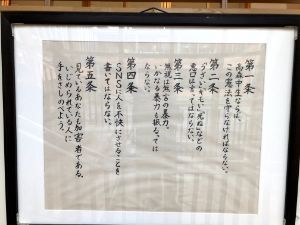 第一条
高森中生ならば、
この憲法を守らなければならない。
第二条
「うざい」「きもい」「死ね」などの
悪口は言ってはならない。
第三条
無視は無言の暴力。
いかなる暴力も振るっては
ならない。
第四条
SNSに人を不快にさせることを
書いてはならない。
第五条
見ているあなたも加害者である。
いじめられている人に
手をさしのべよう。